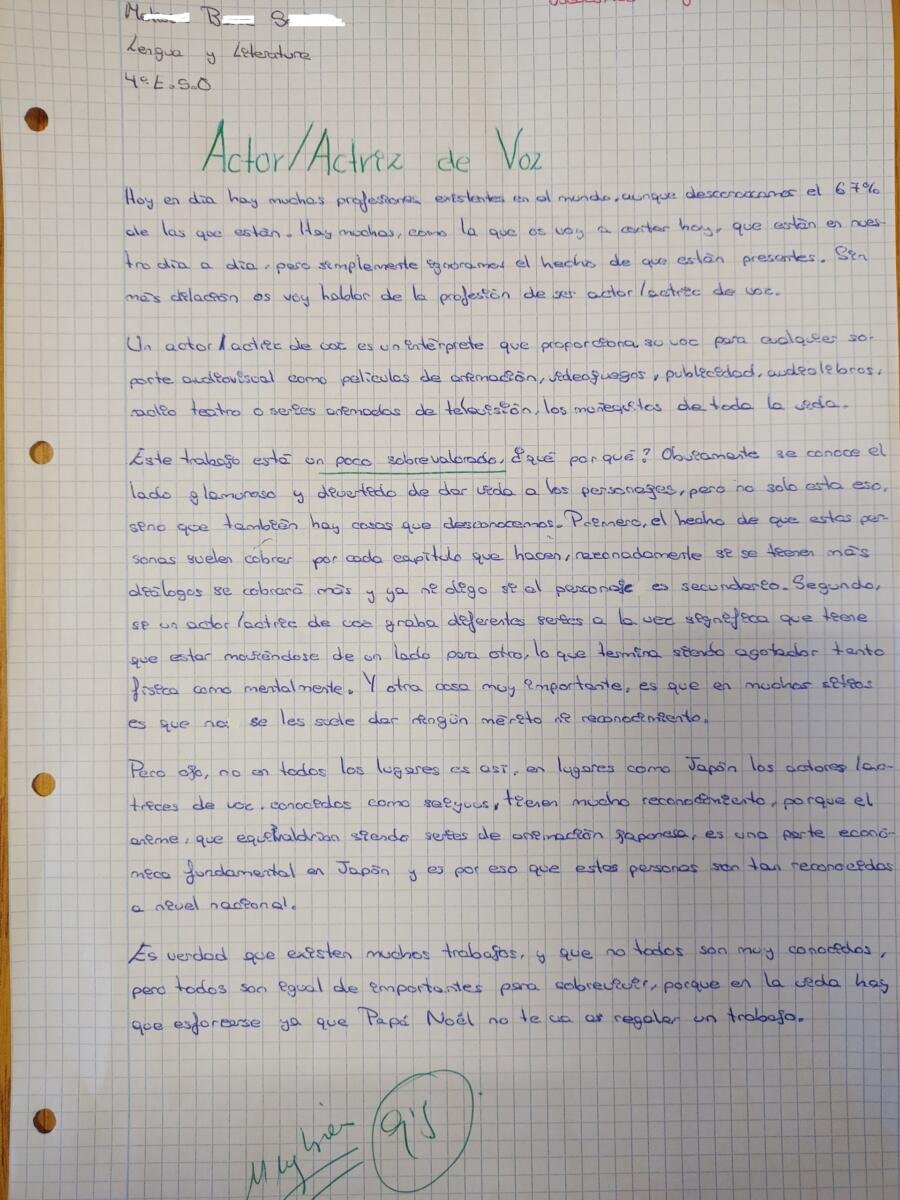 Lengua y Literatura
4º E.S.O
Actor/Actriz de Voz
Hoy en día hay muchas profesiones existentes en el mundo, aunque desconozcamos el 67%
de las que están. Hay muchas, como la que os voy a contar hoy, que están en nues-
tro día a día, pero simplemente ignoramos el hecho de que están presentes. Sin
más dilación os voy hablar de la profesión de ser actor/actriz de voz.
Un actor/actriz de voz es un intérprete que proporciona su voz para cualquier so-
porte audiovisual como películas de animación, videojuegos, publicidad, audiolibros,
radio teatro o series animadas de televisión, los muñequitos de toda la vida.
Este trabajo está un poco sobrevalorado. ¿qué por qué? Obviamente se conoce el
lado glamuroso y divertido de dar vida a los personajes, pero no solo esta eso,
sino que también hay cosas que desconocemos. Primero, el hecho de que estas per-
sonas suelen cobrar por cada capítulo que hacen, razonadamente si se tienen más
diálogos se cobrará más y ya ni digo si el personaje es secundario. Segundo,
si un actor/actriz de voz graba diferentes series a la vez significa que tiene
que estar moviéndose de un lado para otro, lo que termina siendo agotador tanto
física como mentalmente. Y otra cosa muy importante, es que en muchos sitios
es que no se les suele dar ningún mérito ni reconocimiento.
Pero ojo, no en todos los lugares es así, en lugares como Japón los actores/ac-
trices de voz, conocidos como seiyuus, tienen mucho reconocimiento, porque el
anime, que equivaldrían siendo series de animación japonesa, es una parte econó-
mica fundamental en Japón y es por eso que estas personas son tan reconocidas
a nivel nacional.
Es verdad que existen muchos trabajos, y que no todos son muy conocidos,
pero todos son igual de importantes para sobrevivir, porque en la vida hay
que esforzarse ya que Papá Noél no te va as regalar un trabajo.
Muy bien
9'5